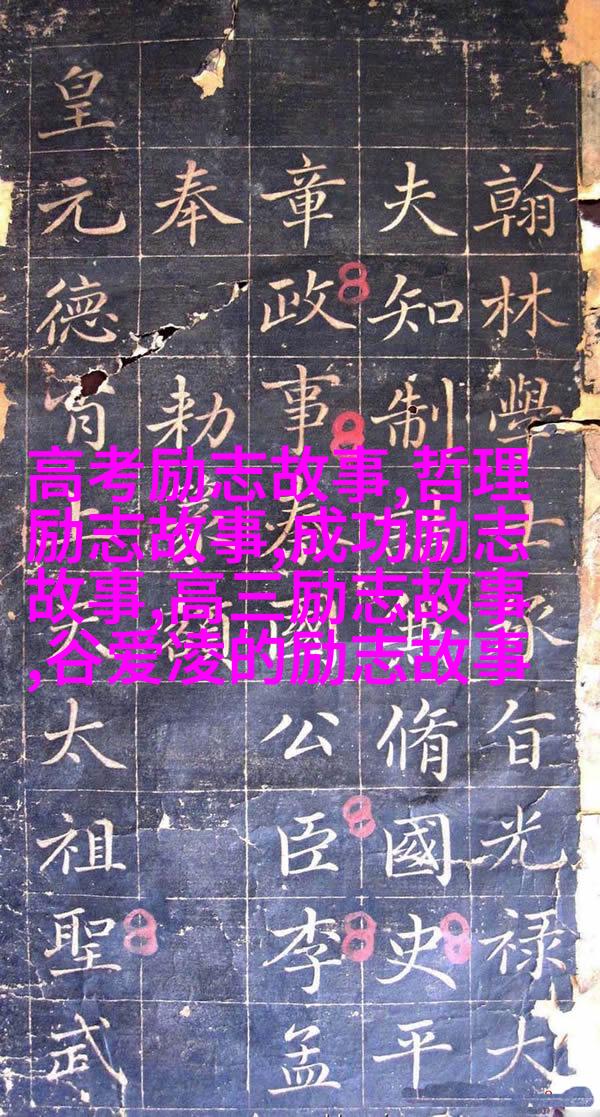 翰林學士承旨光禄大
夫知制兼脩國史平
章政事公臣李孟
奉勅
皇元德肖上天太祖聖武
高考励志故事,哲理
励志故事,成功励志
故事,高三励志故事
,谷爱凌的励志故事
8
8
8
8
8
8